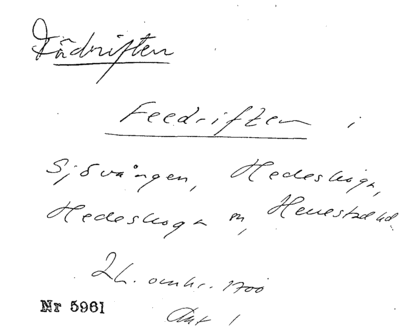 Fädriften
Feedriften i
Sjövången, Hedeskoga,
Hedeskoga m, Herrestad
2h. omkr. 1700
Akt 1
Nr 5961